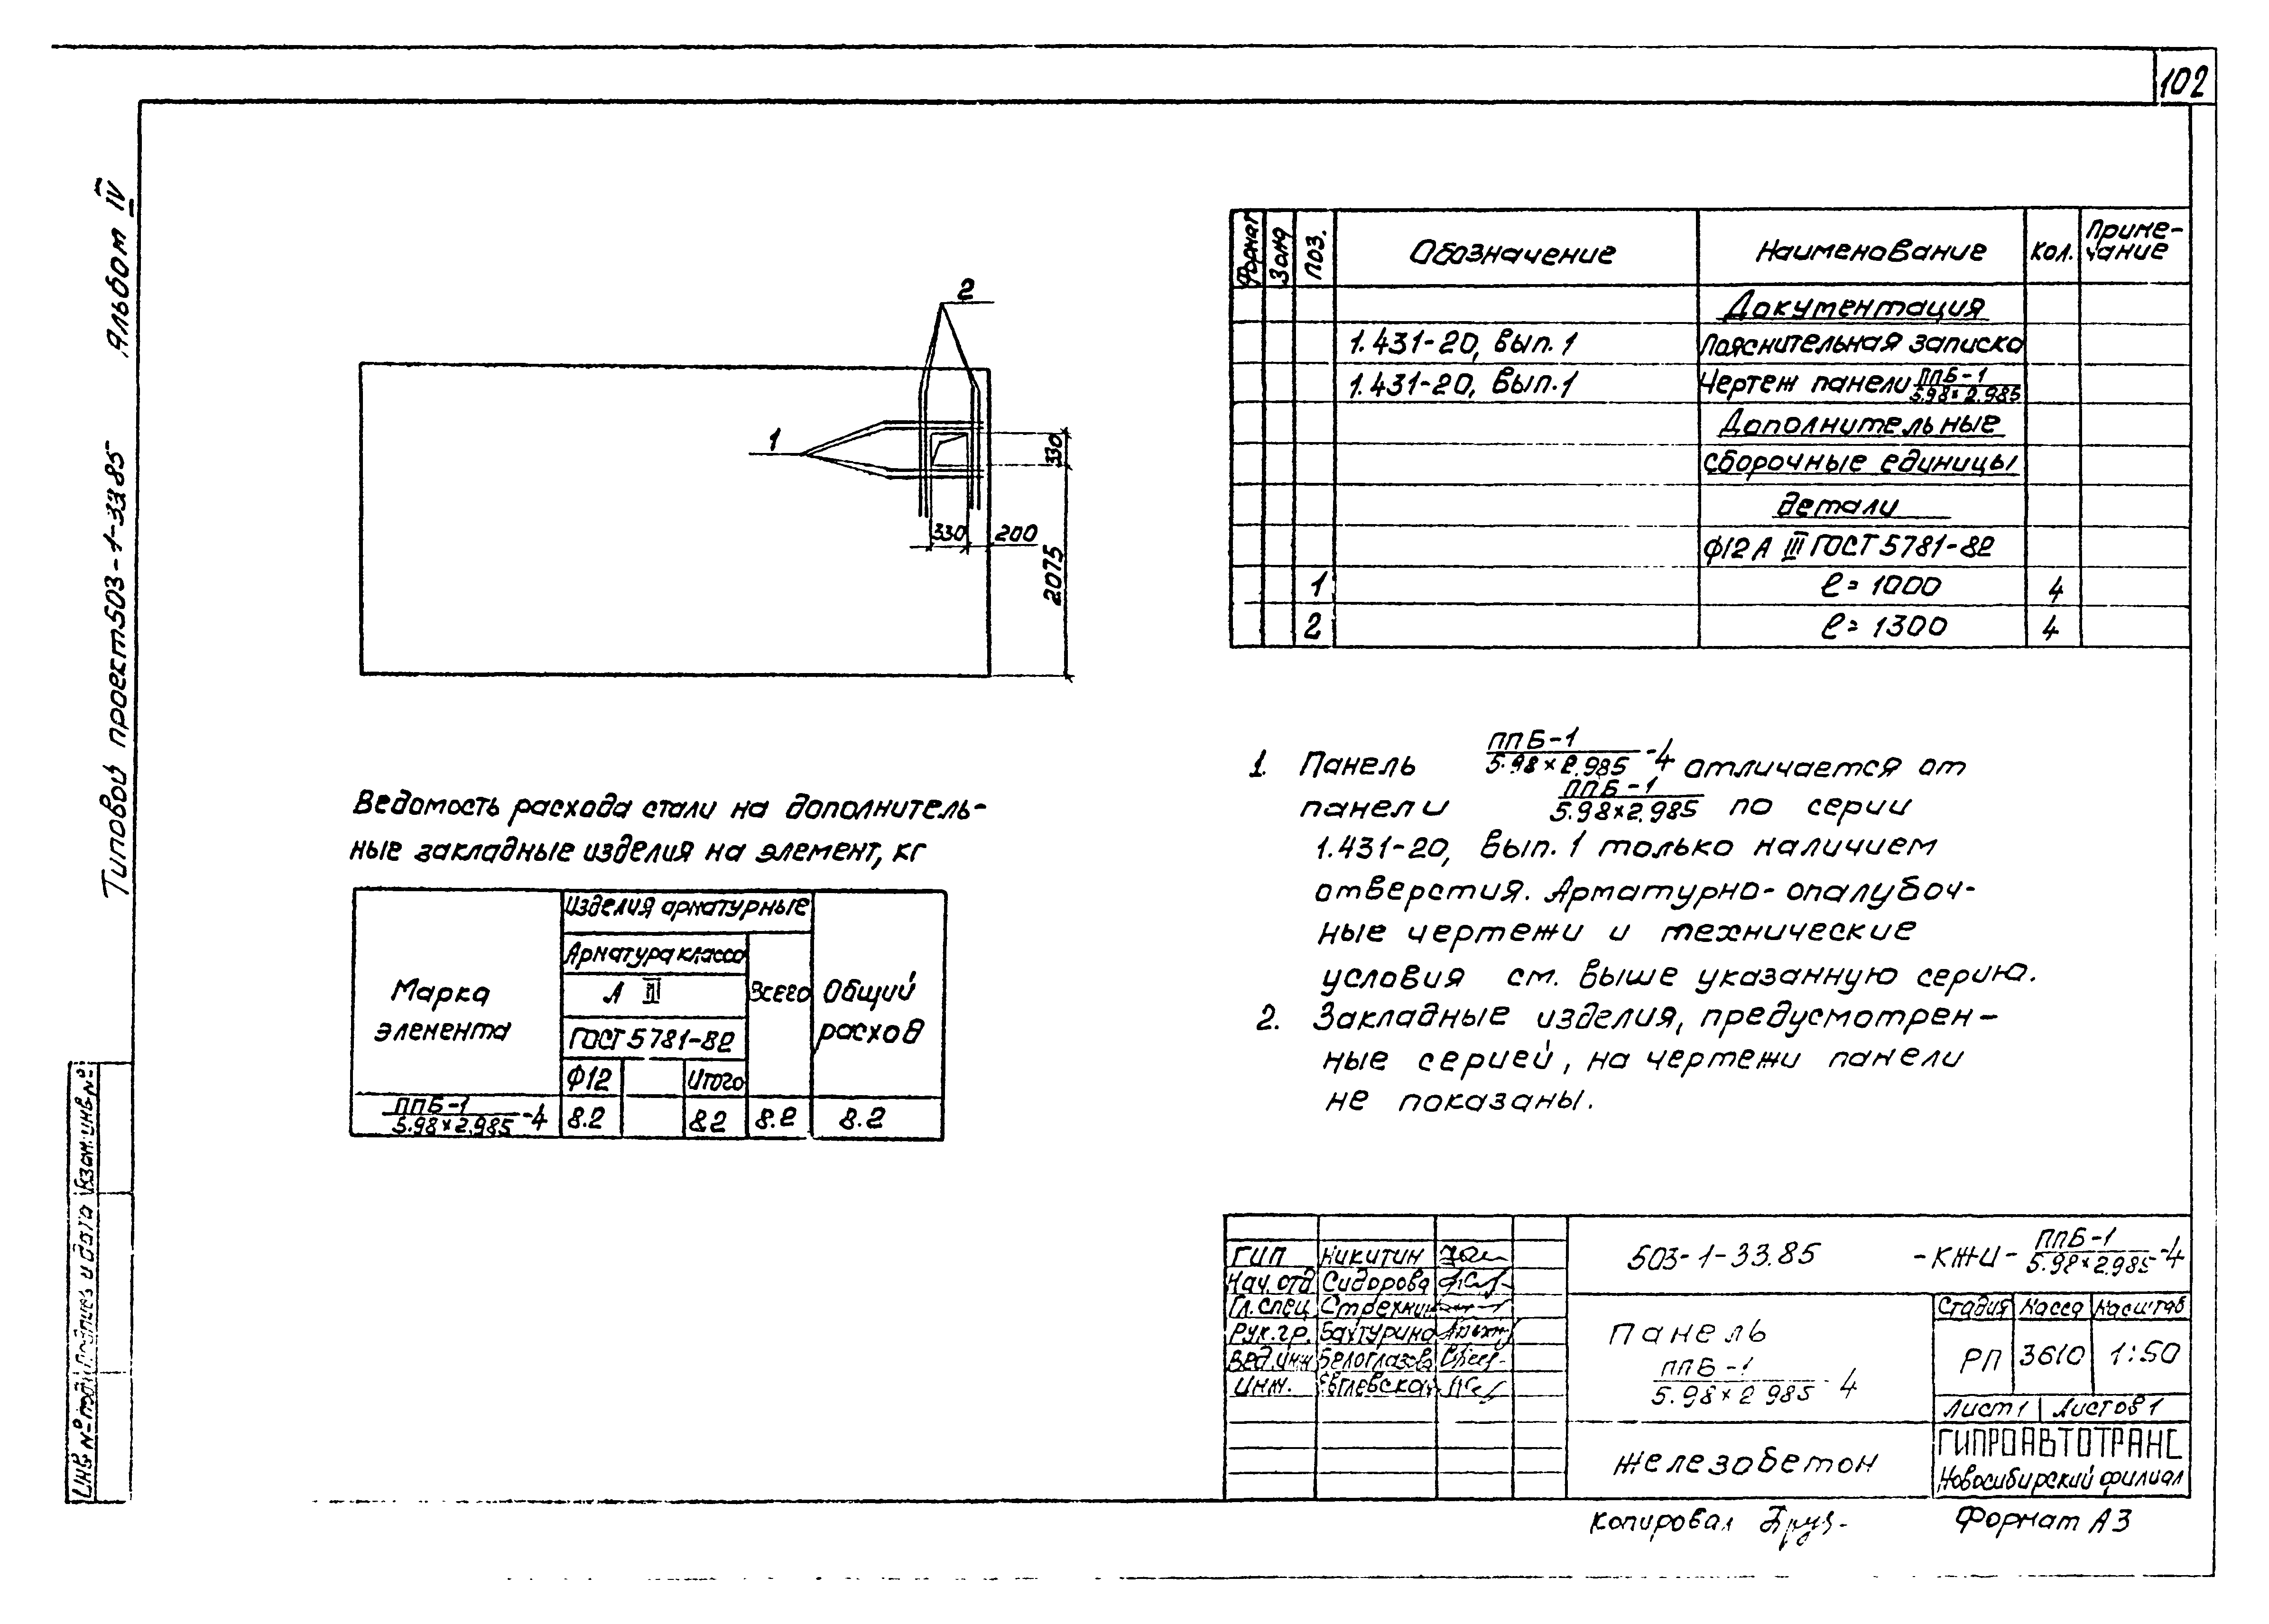 102
Альбом IV
Типовой проект 503-1-33.85
Инв. № подл.
Подпись и дата
Взам. инв. №
2
1
330
330
200
2075
Формат Зона Поз. Обозначение Наименование Кол. Приме-
чание
Документация
1.431-20, вып. 1 Пояснительная записка
1.431-20, вып. 1 Чертеж панели ППБ-1
5.98×2.985
Дополнительные
сборочные единицы
детали
Ф12 А III ГОСТ 5781-82
1 ℓ= 1000 4
2 ℓ= 1300 4
Ведомость расхода стали на дополнитель-
ные закладные изделия на элемент, кг
Марка
элемента
Изделия арматурные
Арматура класса
А III
ГОСТ 5781-82
Ф12 Итого
Всего
Общий
расход
ППБ-1
5.98×2.985 -4 8.2 8.2 8.2 8.2
1. Панель ППБ-1
5.98×2.985 -4 отличается от
панели ППБ-1
5.98×2.985 по серии
1.431-20, вып. 1 только наличием
отверстия. Арматурно-опалубоч-
ные чертежи и технические
условия см. выше указанную серию.
2. Закладные изделия, предусмотрен-
ные серией, на чертежи панели
не показаны.
ГИП Никитин
Нач. отд Сидорова
Гл. спец
Рук. гр. Бахтурина
Вед. инж Белоглазова
Инж.
503-1-33.85 -КЖИ- ППБ-1
5.98×2.985 -4
Панель
ППБ-1
5.98×2 985 4
Стадия Масса Масштаб
РП 3610 1:50
Лист 1 Листов 1
Железобетон
ГИПРОАВТОТРАНС
Новосибирский филиал
Копировал
Формат А3